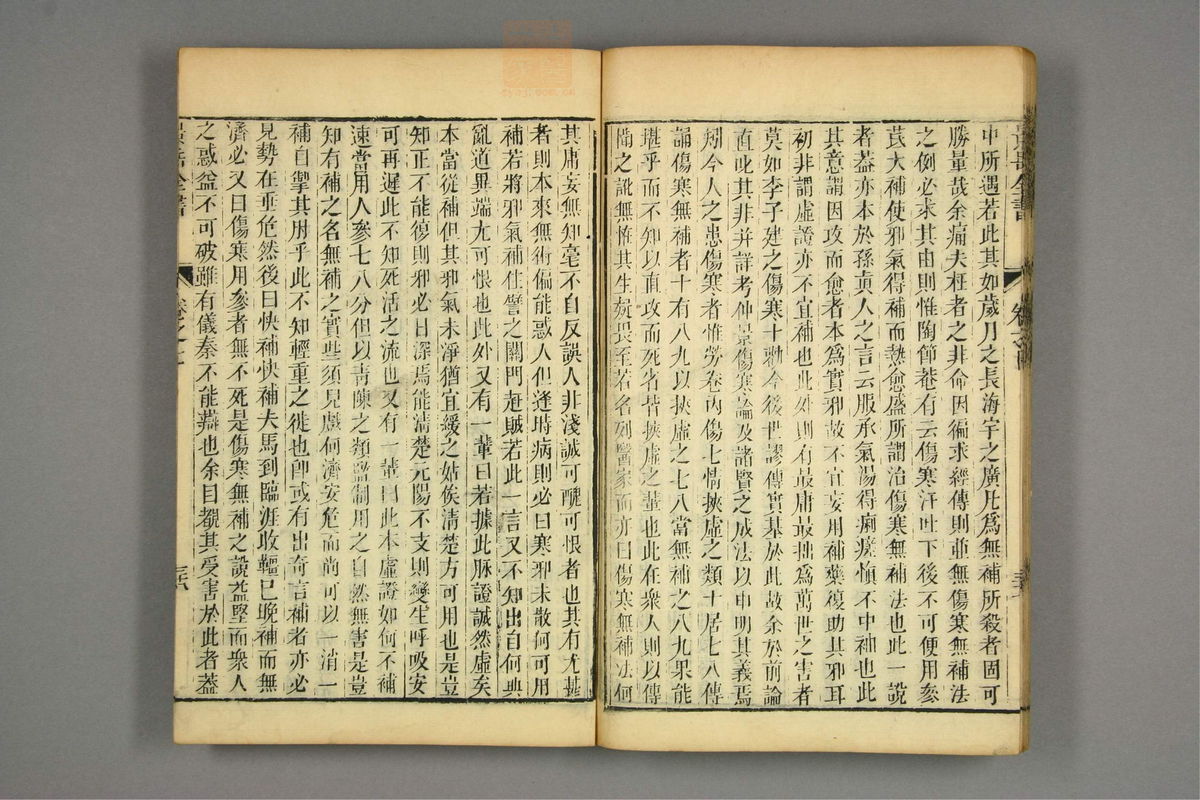 中所遇若此其如歲月之長海宇之廣凡爲無補所殺者固可
勝量哉余痛夫枉者之非命因徧求經傳則並無傷寒無補法
之例必求其由則惟陶節菴有云傷寒汗吐下後不可便用參
茋大補使邪氣得補而熱愈盛所謂治傷寒無補法也此一說
者葢亦本於孫眞人之言云服承氣湯得痢瘥愼不中補也此
其意謂因攻而愈者本爲實邪故不宜妄用補藥復助其邪耳
初非謂虛證亦不宜補也此外則有最庸最拙爲萬世之害者
莫如李子建之傷寒十勸今後世謬傳實基於此故余於前論
直叱其非并詳考仲景傷寒論及諸賢之成法以申明其義焉
矧今人之患傷寒者惟勞倦內傷七情挾虛之類十居七八傳
誦傷寒無補者十有八九以挾虛之七八當無補之八九果能
堪乎而不知以直攻而死者皆挾虛之輩也此在衆人則以傳
聞之訛無惟其生疑畏至若名列醫家而亦曰傷寒無補法何
其庸妄無知毫不自反誤人非淺誠可醜可恨者也其有尤甚
者則本來無術偏能惑人但逢時病則必曰寒邪未散何可用
補若將邪氣補住譬之關門赶賊若此一言又不知出自何典
亂道異端尤可恨也此外又有一輩曰若據此脉證誠然虛矣
本當從補但其邪氣未淨猶宜緩之姑俟清楚方可用也是豈
知正不能復則邪必日深焉能清楚元陽不支則變生呼吸安
可再遲此不知死活之流也又有一輩曰此本虛證如何不補
速當用人參七八分但以青陳之類監制用之自然無害是豈
知有補之名無補之實些須兒戲何濟安危而尚可以一消一
補自掣其肘乎此不知輕重之徙也卽或有出奇言補者亦必
見勢在垂危然後曰快補快補夫馬到臨涯收韁已晚補而無
濟必又曰傷寒用參者無不死是傷寒無補之說益堅而衆人
之惑益不可破雖有儀秦不能辯也余目覩其受害於此者葢
景岳全書
卷之七
三六